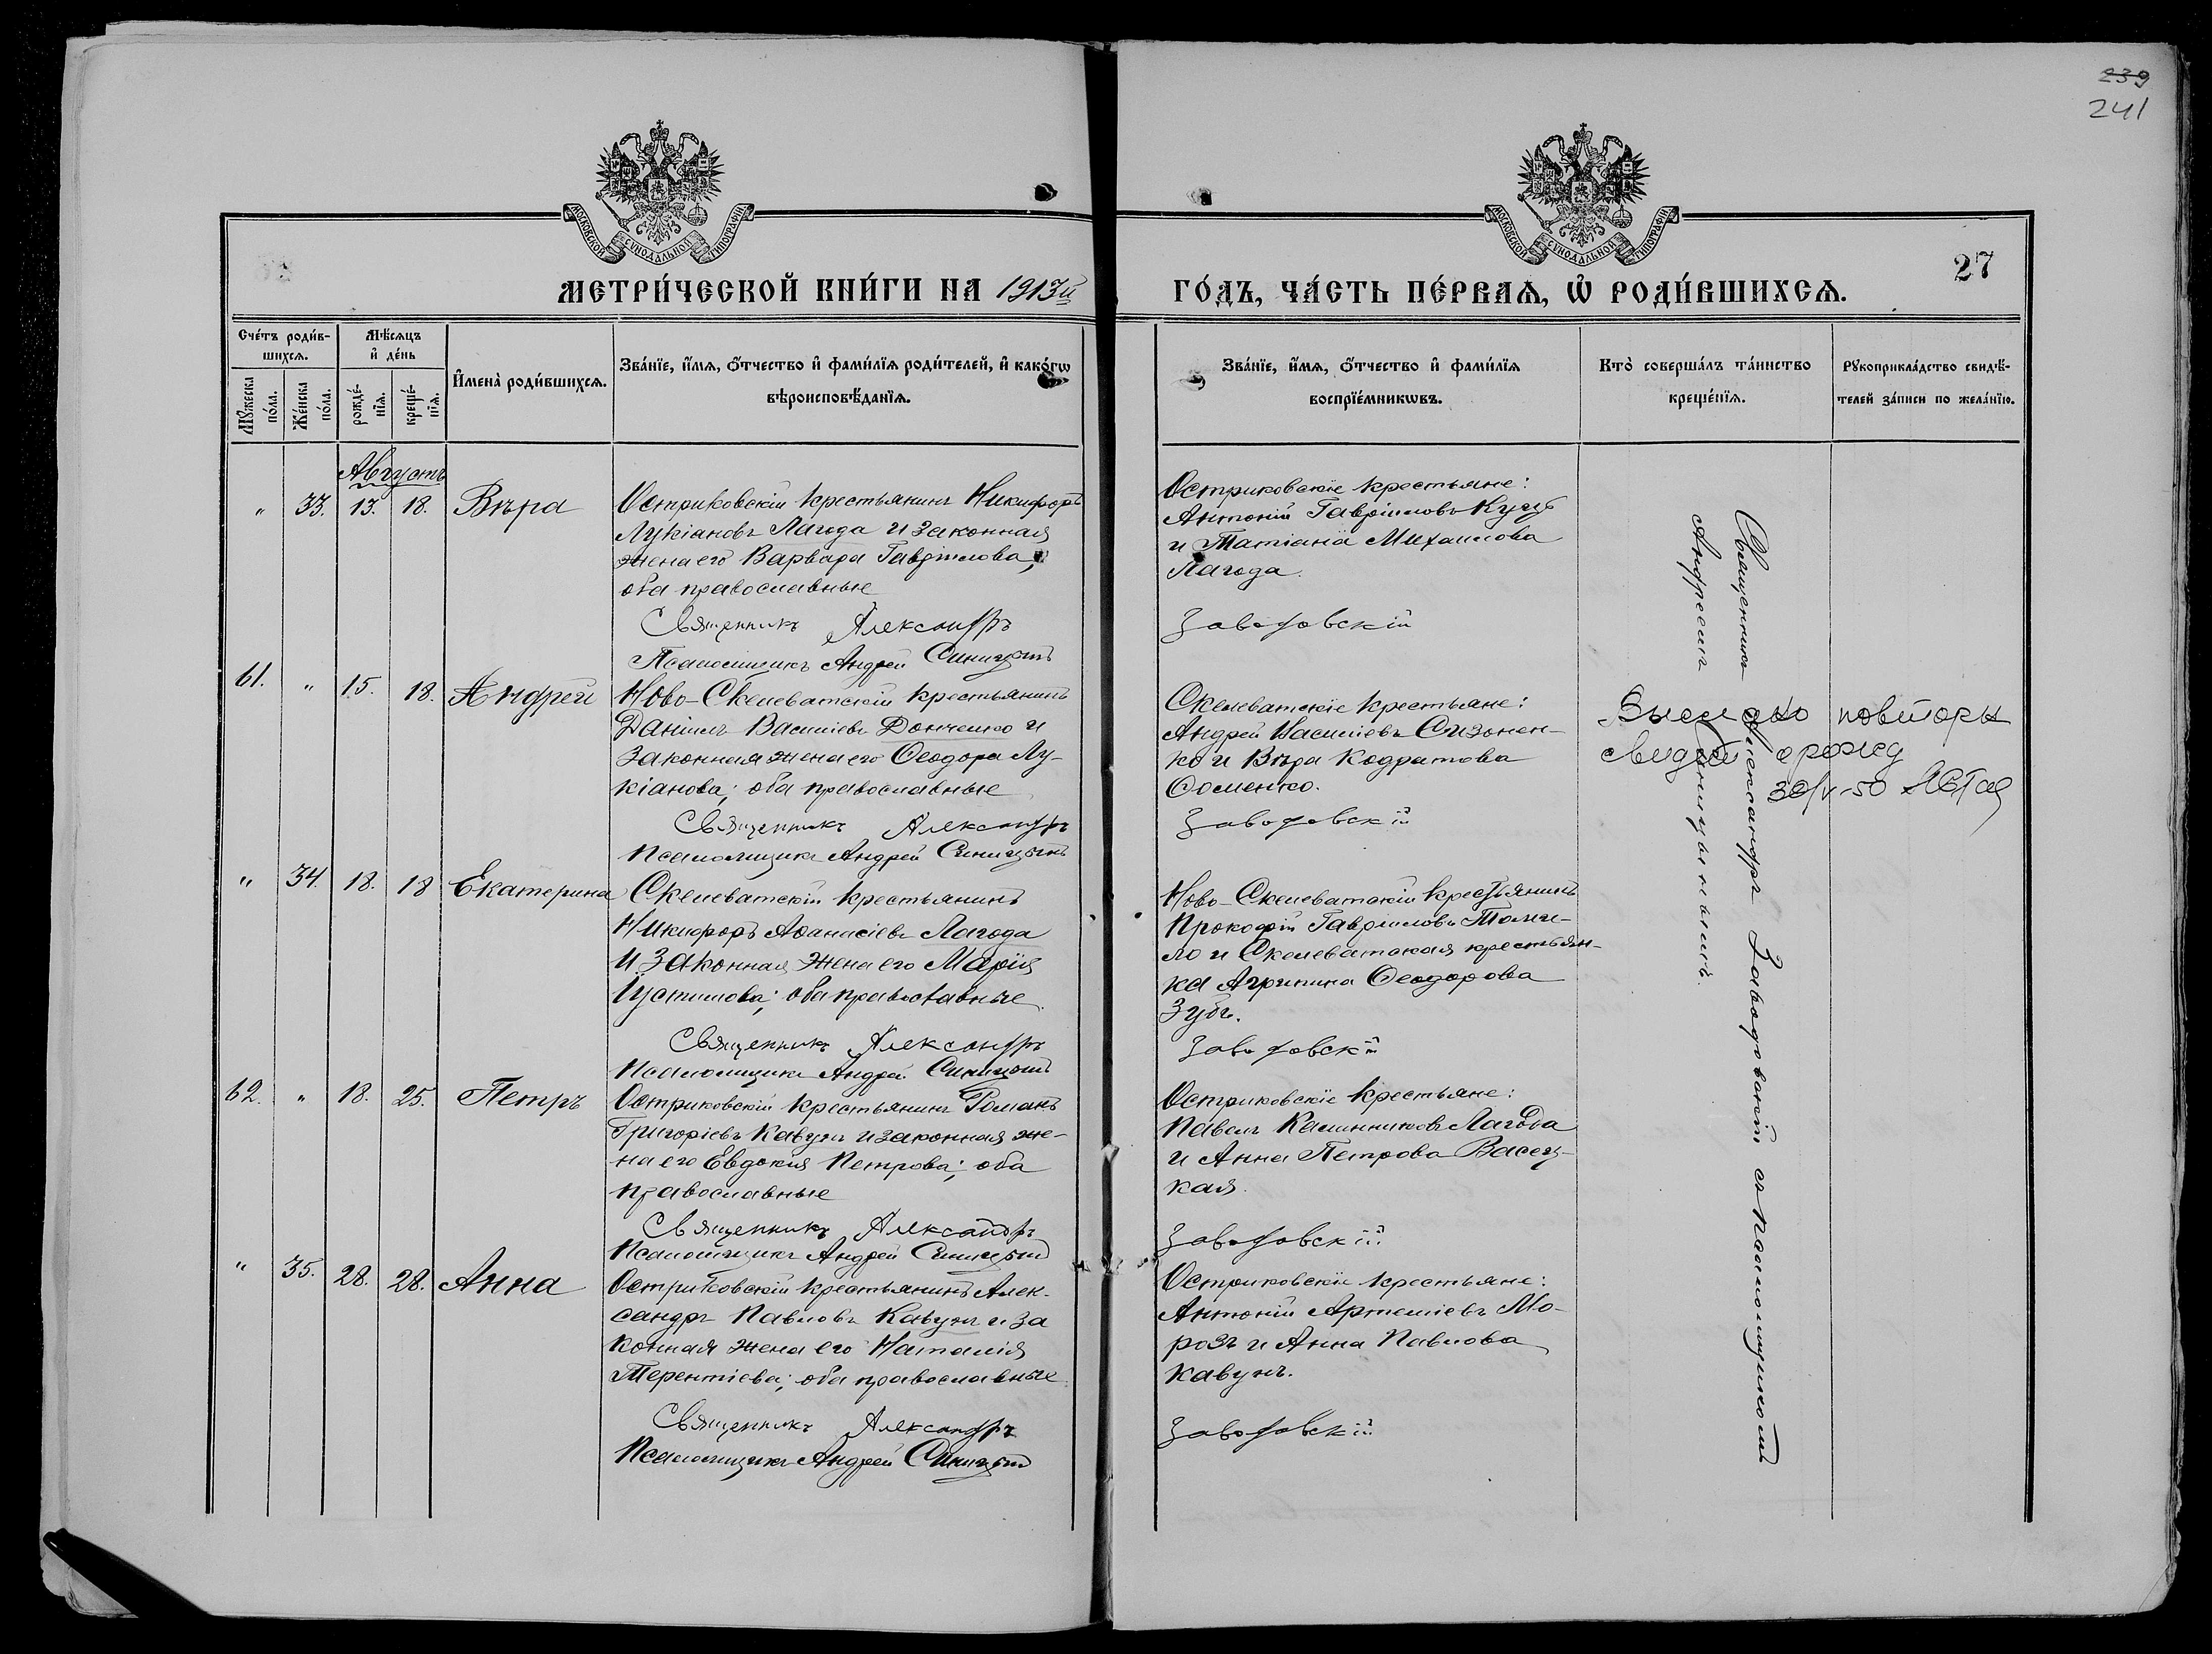 239
241
МОСКОВСКОЙ СѴНОДАЛЬНОЙ ТИПОГРАФІИ
МОСКОВСКОЙ СѴНОДАЛЬНОЙ ТИПОГРАФІИ
27
МЕТРИ́ЧЕСКОЙ КНИ́ГИ НА 1913й
ГО́ДЪ, ЧА́СТЬ ПЕ́РВАѦ, Ѡ҆ РОДИ́ВШИХСѦ.
Сче́тъ роди́в-
шихсѧ.
Мꙋ́жеска
по́ла.
Же́нска
по́ла.
Мѣ́сѧцъ
и҆ де́нь
рожде́-
нїѧ.
креще́-
нїѧ.
И҆мена̀ роди́вшихсѧ.
Зва́нїе, и҆́мѧ, ѻ҆́тчество и҆ фами́лїѧ роди́телей, и҆ како́гѡ
вѣроисповѣ́данїѧ.
Зва́нїе, и҆́мѧ, ѻ҆́тчество и҆ фами́лїѧ
воспрїе́мникѡвъ.
Кто̀ соверша́лъ та́инство
креще́нїѧ.
Рꙋкоприкла́дство свидѣ́-
телей за́писи по жела́нїю.
Августъ
" 33. 13. 18. Вѣра
Остриковскій крестьянинъ Никифоръ
Лукіановъ Лагода и законная
жена его Варвара Гавріилова;
оба православные
Священникъ Александръ
Псаломщикъ Андрей Синицынъ
Остриковскіе крестьяне:
Антоній Гавріиловъ Куцъ
и Татіана Михаилова
Лагода.
Заводовскій
61. " 15. 18. Андрей
Ново-Скелеватскій крестьянинъ
Даніилъ Василіевъ Донченко и
законная жена его Ѳеодора Лу-
кіанова; оба православные
Священникъ Александръ
Псаломщикъ Андрей Синицынъ
Скелеватскіе крестьяне:
Андрей Василіевъ Сизонен-
ко и Вѣра Кодратова
Фоменко.
Заводовскій
" 34. 18. 18 Екатерина
Скелеватскій крестьянинъ
Никифоръ Аѳанасіевъ Лагода
и законная жена его Марія
Іустинова; оба православные
Священникъ Александръ
Псаломщикъ Андрей Синицынъ
Ново-Скелеватскій крестьянинъ
Прокофій Гавріиловъ
и Скелеватская крестьян-
ка Агрипина Ѳеодорова
Зубъ.
Заводовскій
62. " 18. 25. Петръ
Остриковскій крестьянинъ Романъ
Григоріевъ Кавунъ и законная же-
на его Евдокія Петрова; оба
православные
Священникъ Александръ
Псаломщикъ Андрей Синицынъ
Остриковскіе крестьяне:
Павелъ Калинниковъ Лагода
и Анна Петрова Васец-
кая.
Заводовскій
" 35. 28. 28. Анна
Остриковскій крестьянинъ Алек-
сандръ Павловъ Кавунъ и за
конная жена его Наталія
Терентіева; оба православные
Священникъ Александръ
Псаломщикъ Андрей Синицынъ
Остриковскіе крестьяне:
Антоній Артеміевъ Мо-
розъ и Анна Павлова
Кавунъ.
Заводовскій
Священникъ Александръ Заводовскій съ Псаломщикомъ
Андреемъ Синицынымъ.
повторн
30/V-50